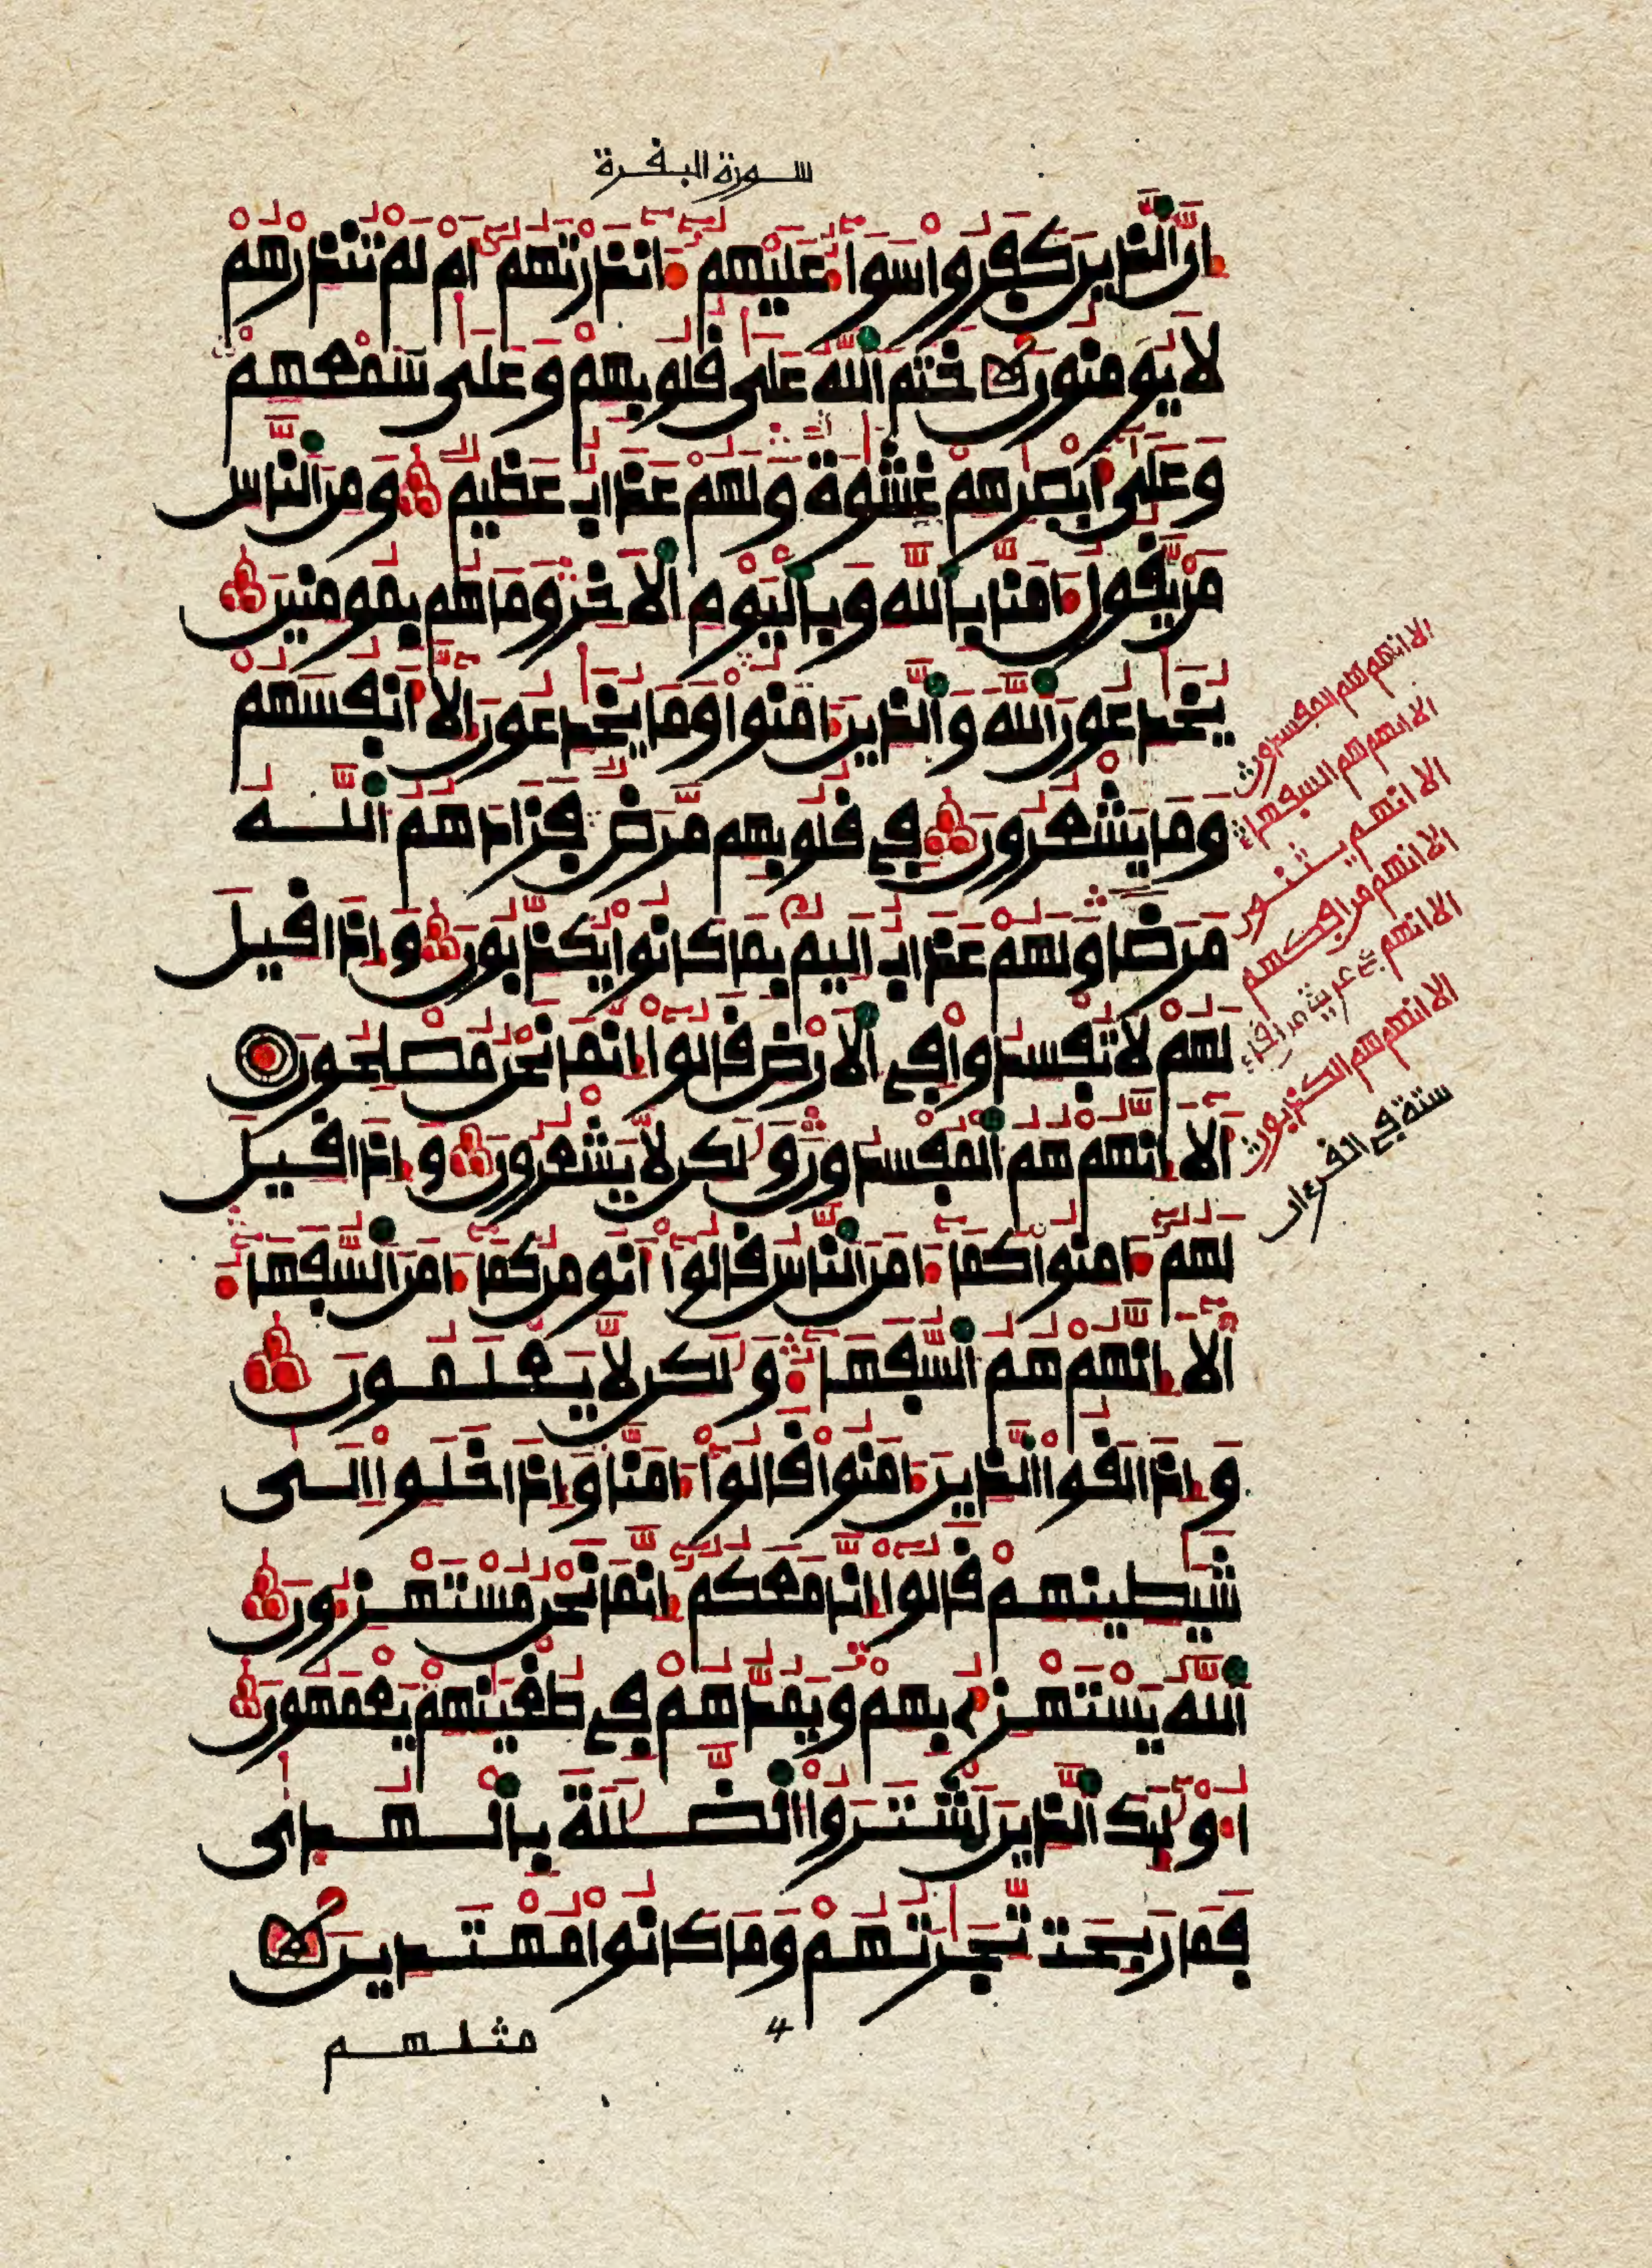 سورة البقرة
ان الذين كفروا سوا عليهم انذرتهم ام لم تنذرهم
لا يومنون ختم الله على قلوبهم وعلى سمعهم
وعلى ابصرهم غشوة ولهم عذاب عظيم ومن الناس
من يقول امنا بالله وباليوم الاخر وما هم بمومنين
يخدعون الله والذين امنوا وما يخدعون الا انفسهم
وما يشعرون في قلوبهم مرض فزادهم الله
مرضا ولهم عذاب اليم بما كانوا يكذبون واذا قيل
لهم لا تفسدوا في الارض قالوا انما نحن مصلحون
الا انهم هم المفسدون ولكن لا يشعرون واذا قيل
لهم امنوا كما امن الناس قالوا انومن كما امن السفها
الا انهم هم السفها ولكن لا يعلمون
واذا لقوا الذين امنوا قالوا امنا واذا خلوا الى
شيطينهم قالوا انا معكم انما نحن مستهزون
الله يستهزئ بهم ويمدهم في طغينهم يعمهون
اوليك الذين اشتروا الضللة بالهدى
فما ربحت تجرتهم وما كانوا مهتدين
4
مثلهم
الا انهم هم المفسدون
الا انهم هم السفهاء
الا انهم يثنون
الا انهم من افكهم
الا انهم في مرية من لقاء
الا انهم هم الكذبون
ستة في القرءان